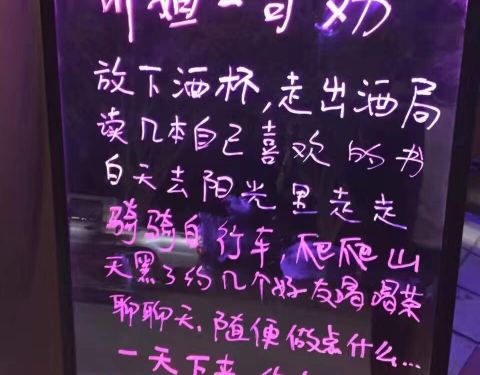 放下酒杯,走出酒局
读几本自己喜欢的书
白天去阳光里走走
骑骑自行车,爬爬山
天黑了约几个好友喝喝茶
聊聊天,随便做点什么...
一天下来